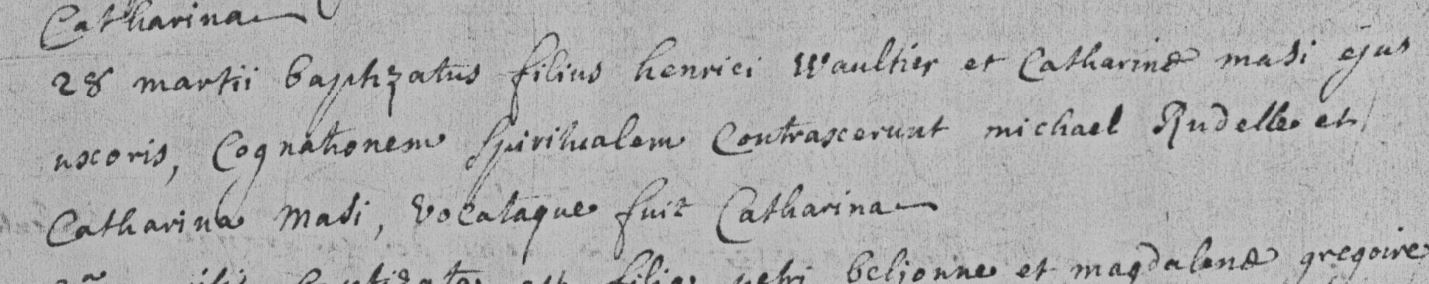 Catharina
28 martii baptizatus filius henrici Waultier et Catharinæ masi ejus
uxoris, Cognationem spiritualem Contraxerunt michael Rudelle et
Catharina Masi, Vocataque fuit Catharina
baptizata est filia petri beljonne et magdalenæ gregoire